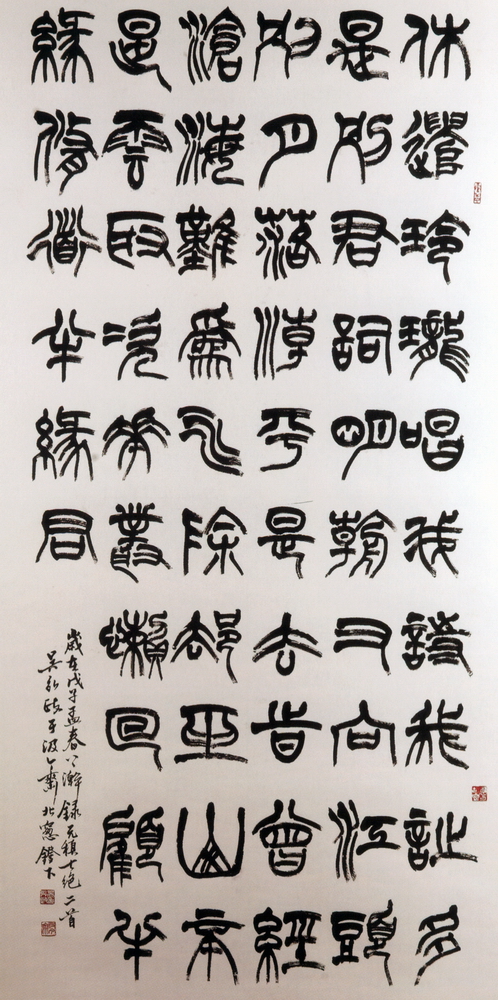 休遣玲瓏唱我詩我詩多
是別君詞明朝又向江頭
別月落潮平是去時曾經
滄海難為水除卻巫山不
是雲取次花叢懶回顧半
緣修道半緣君
歲在戊子孟春上澣錄元稹七絕二首
吳於汲古齋北窗鐙下